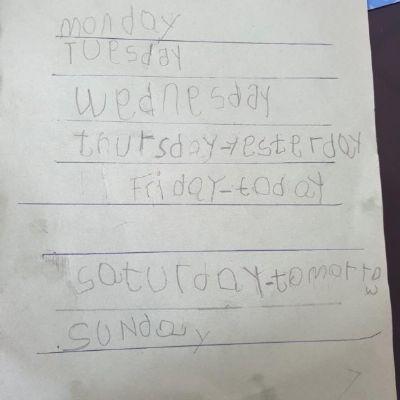 monday
TUesday
wednesday
thursday-Yesterday
Friday-today
saturday-tomorrow
SUNday